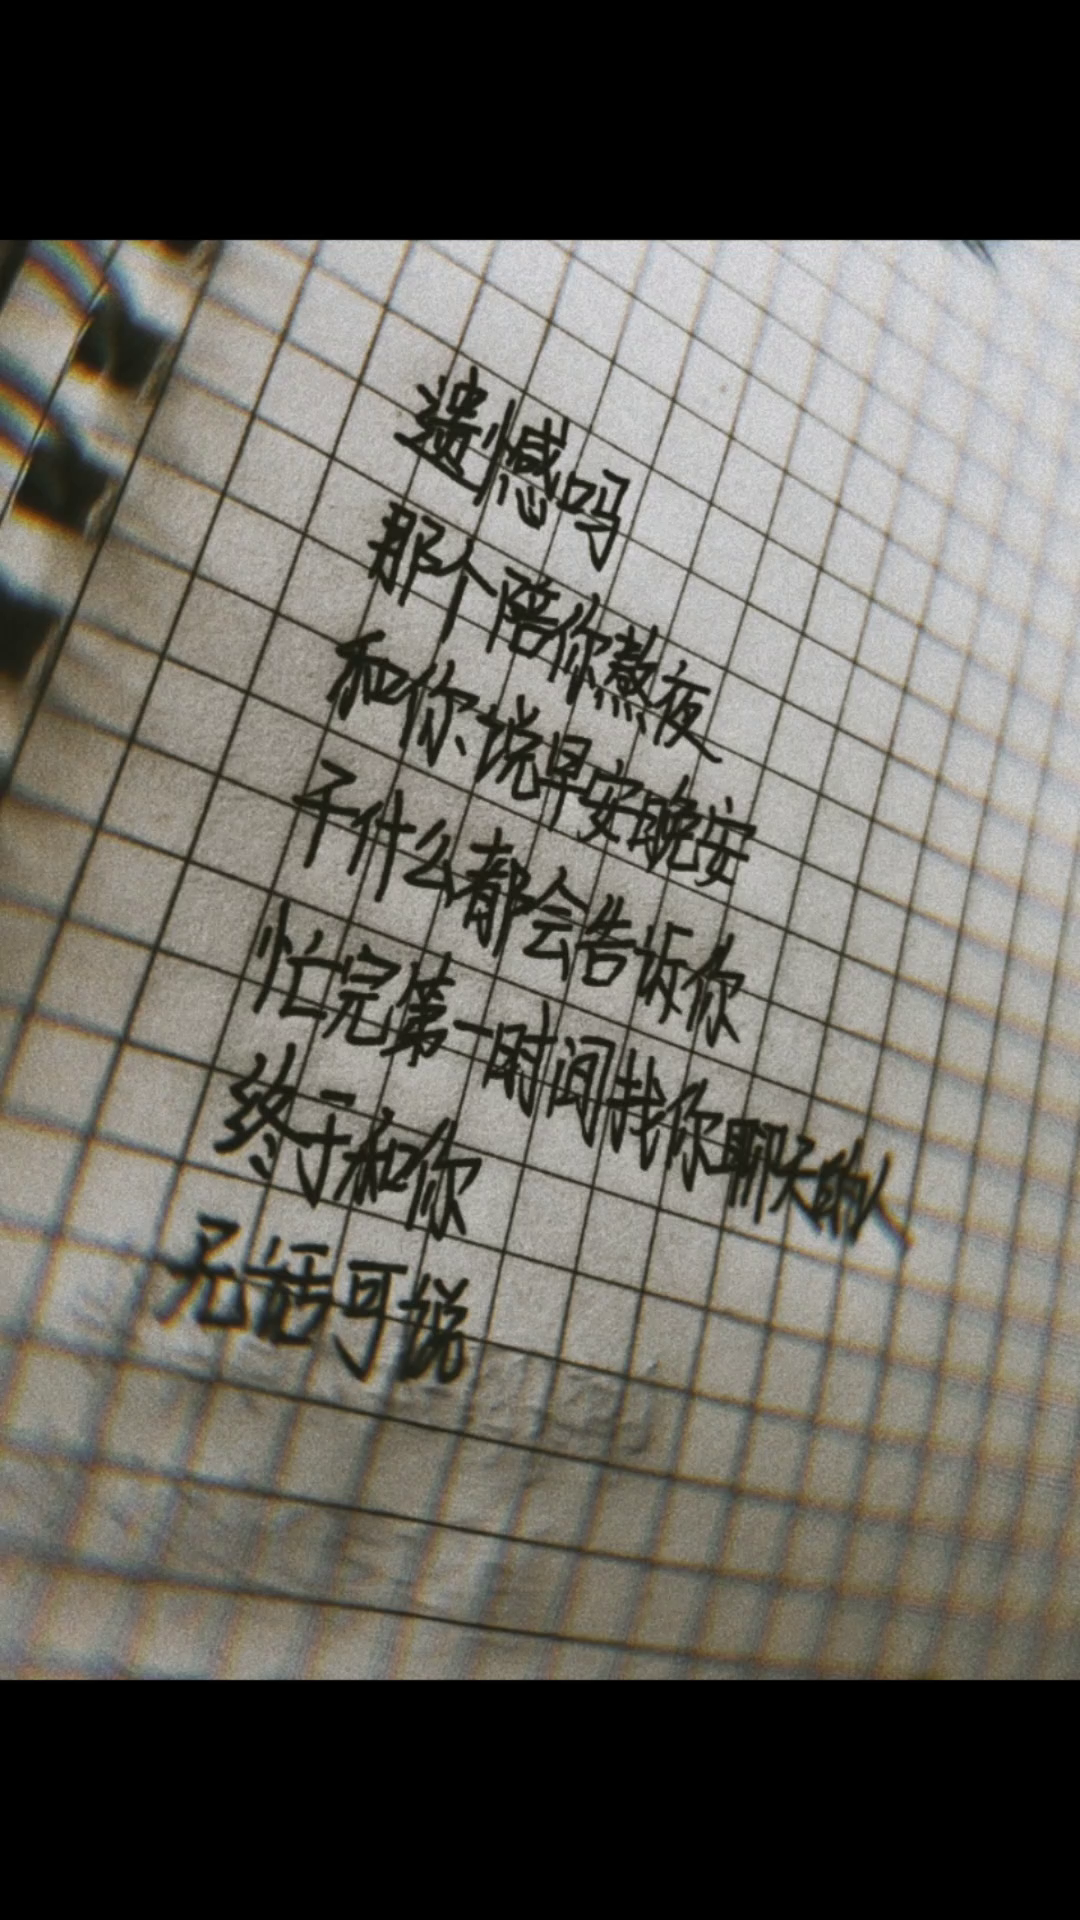 遗憾吗
那人陪你熬夜
和你说早安晚安
干什么都会告诉你
忙完第一时间找你聊天的人
终于和你
无话可说